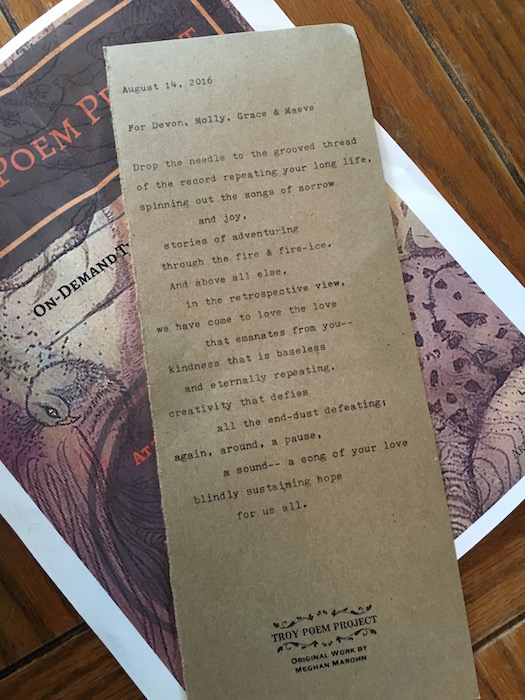 POEM
ON-DEMAND
August 14, 2016
For Devon, Molly, Grace & Maeve
Drop the needle to the grooved thread
of the record repeating your long life,
spinning out the songs of sorrow
and joy,
stories of adventuring
through the fire & fire-ice.
And above all else,
in the retrospective view,
we have come to love the love
that emanates from you--
kindness that is baseless
and eternally repeating,
creativity that defies
all the end-dust defeating;
again, around, a pause,
a sound-- a song of your love
blindly sustaining hope
for us all.
TROY POEM PROJECT
ORIGINAL WORK BY
MEGHAN MAROHN